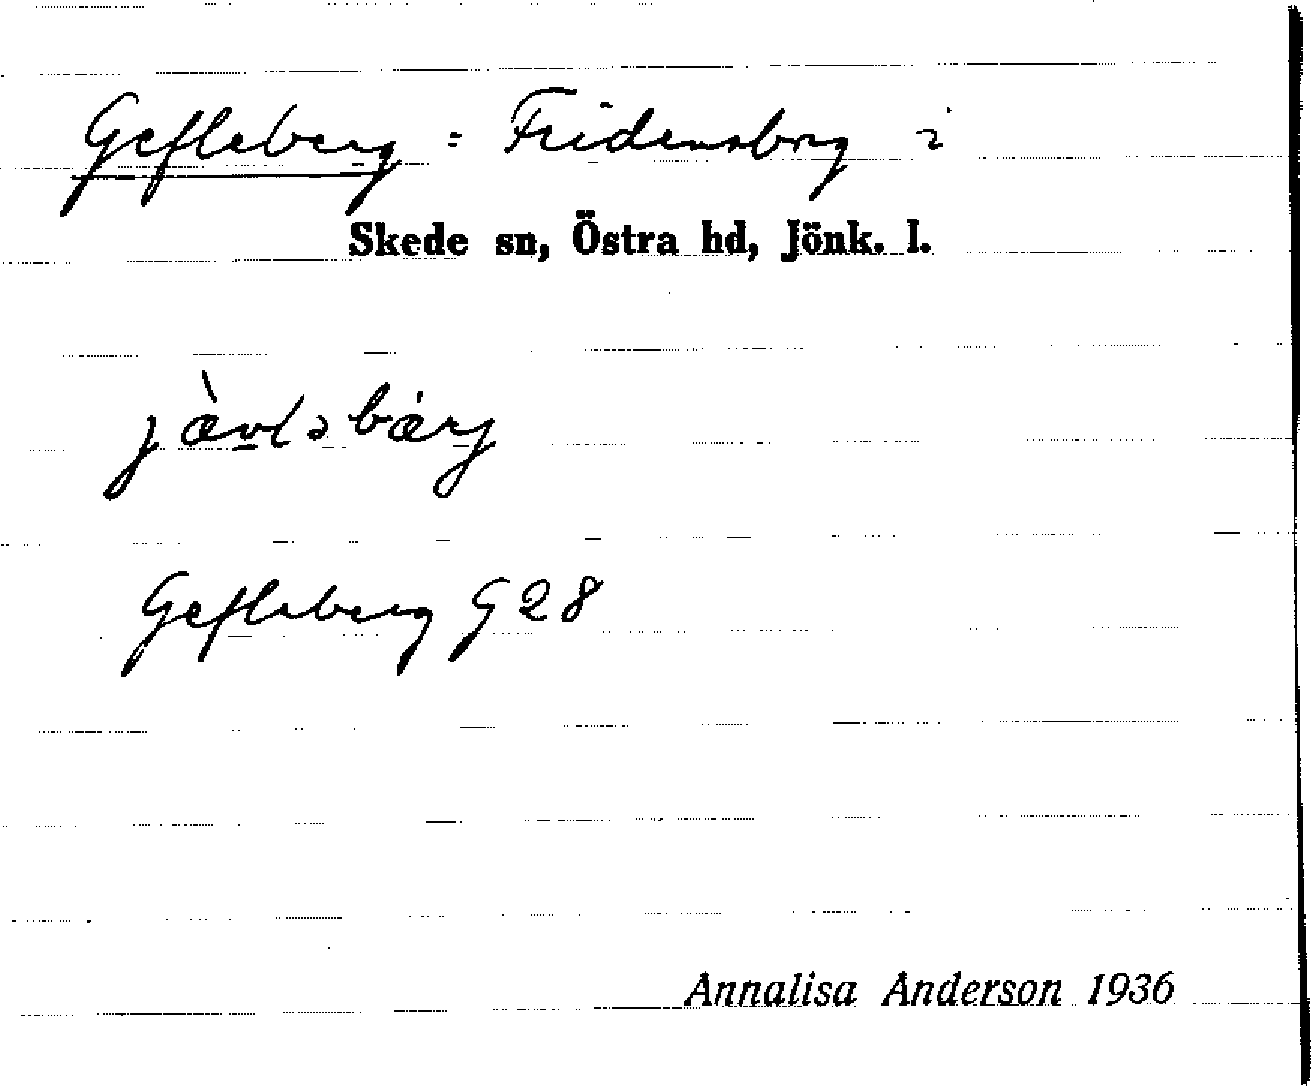 Gefleberg = Fridensborg i
Skede sn, Östra hd, Jönk. l.
jàvləbárj
Gefleberg G28
Annalisa Anderson 1936